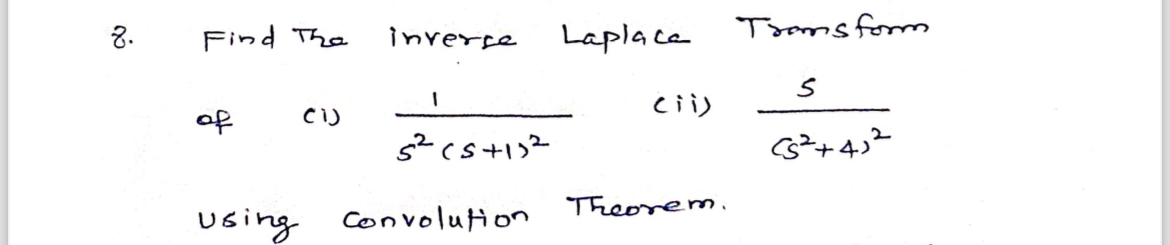 8. Find The inverse Laplace Transform
of (i) 1/(s²(s+1)²) (ii) s/(s²+4)²
using Convolution Theorem.